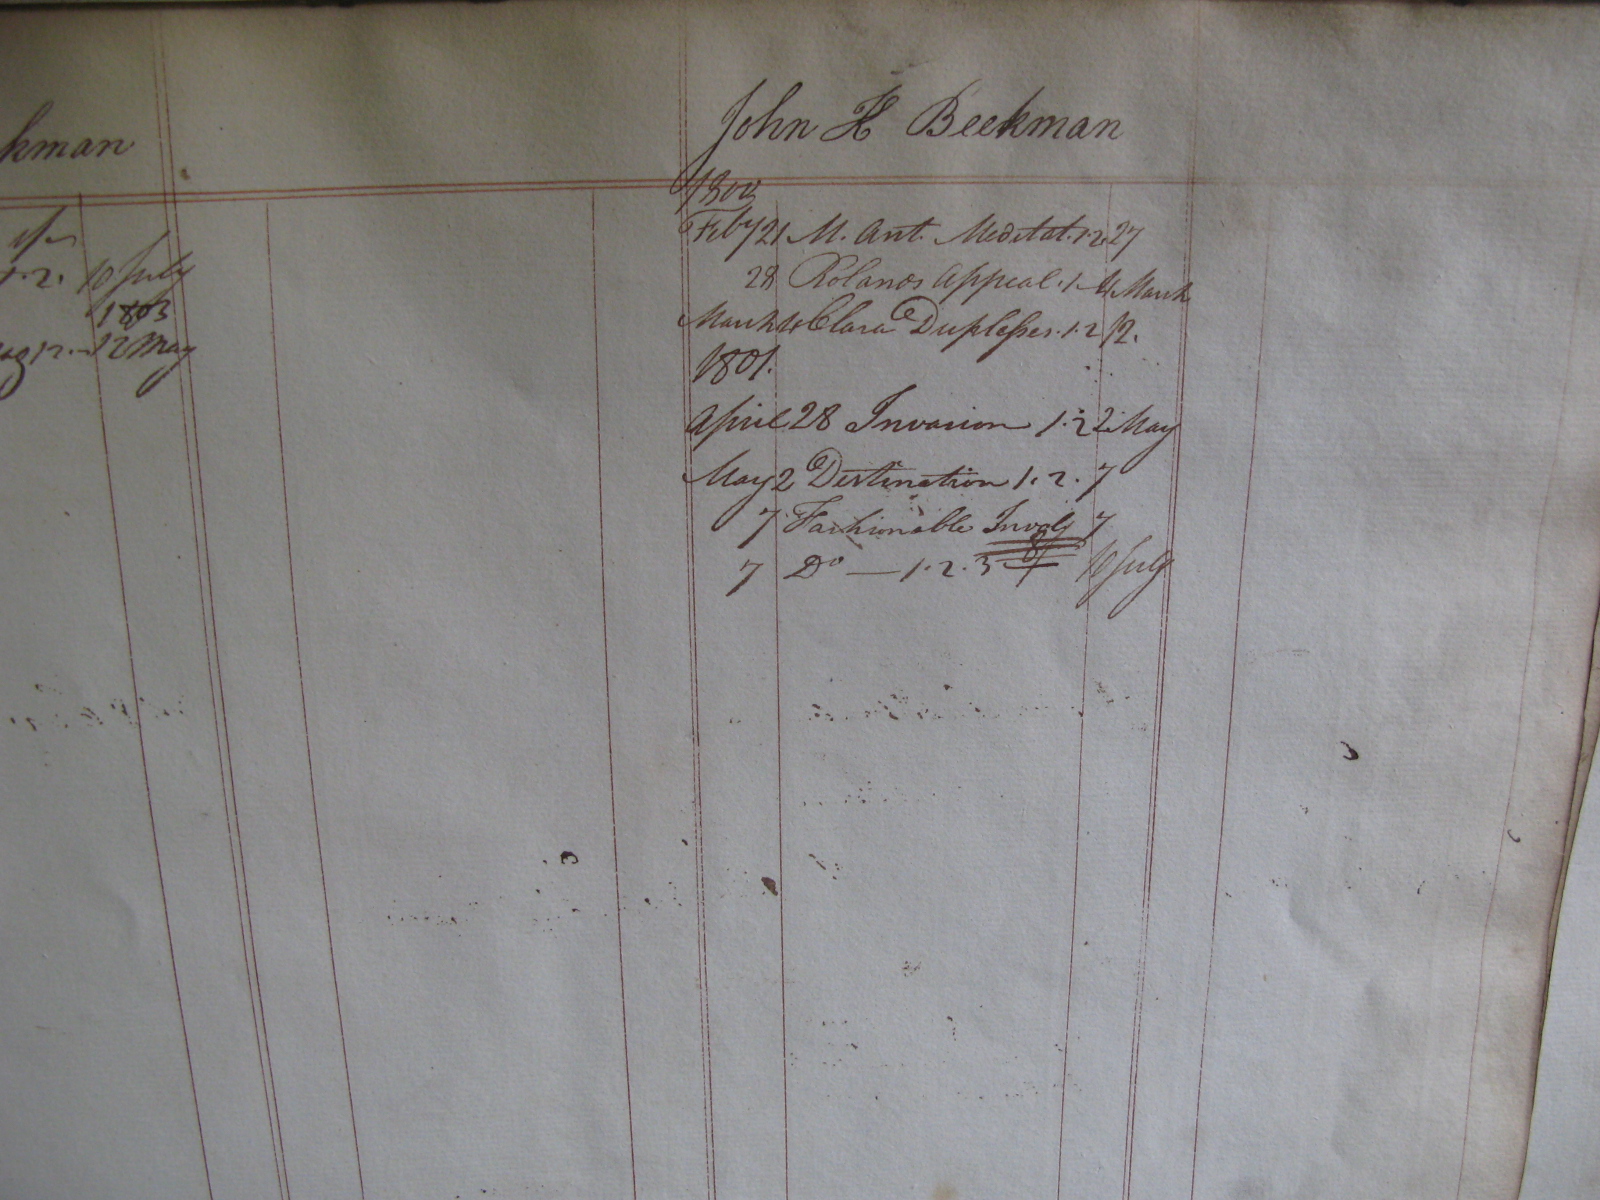 kman
1.2. 10 July
1803
12. 12 May
John H Beekman
1800
Feby 21 M. Ant. Meditat. 1.2. 27
28 Rolands Appeal. 1 4 March
March 4 Clara Duplesses. 1.2 12.
1801.
April 28 Invasion 1.2 2 May
May 2 Destination 1.2. 7
7 Fashionable Involv 7
7 Do — 1.2.3 10 July